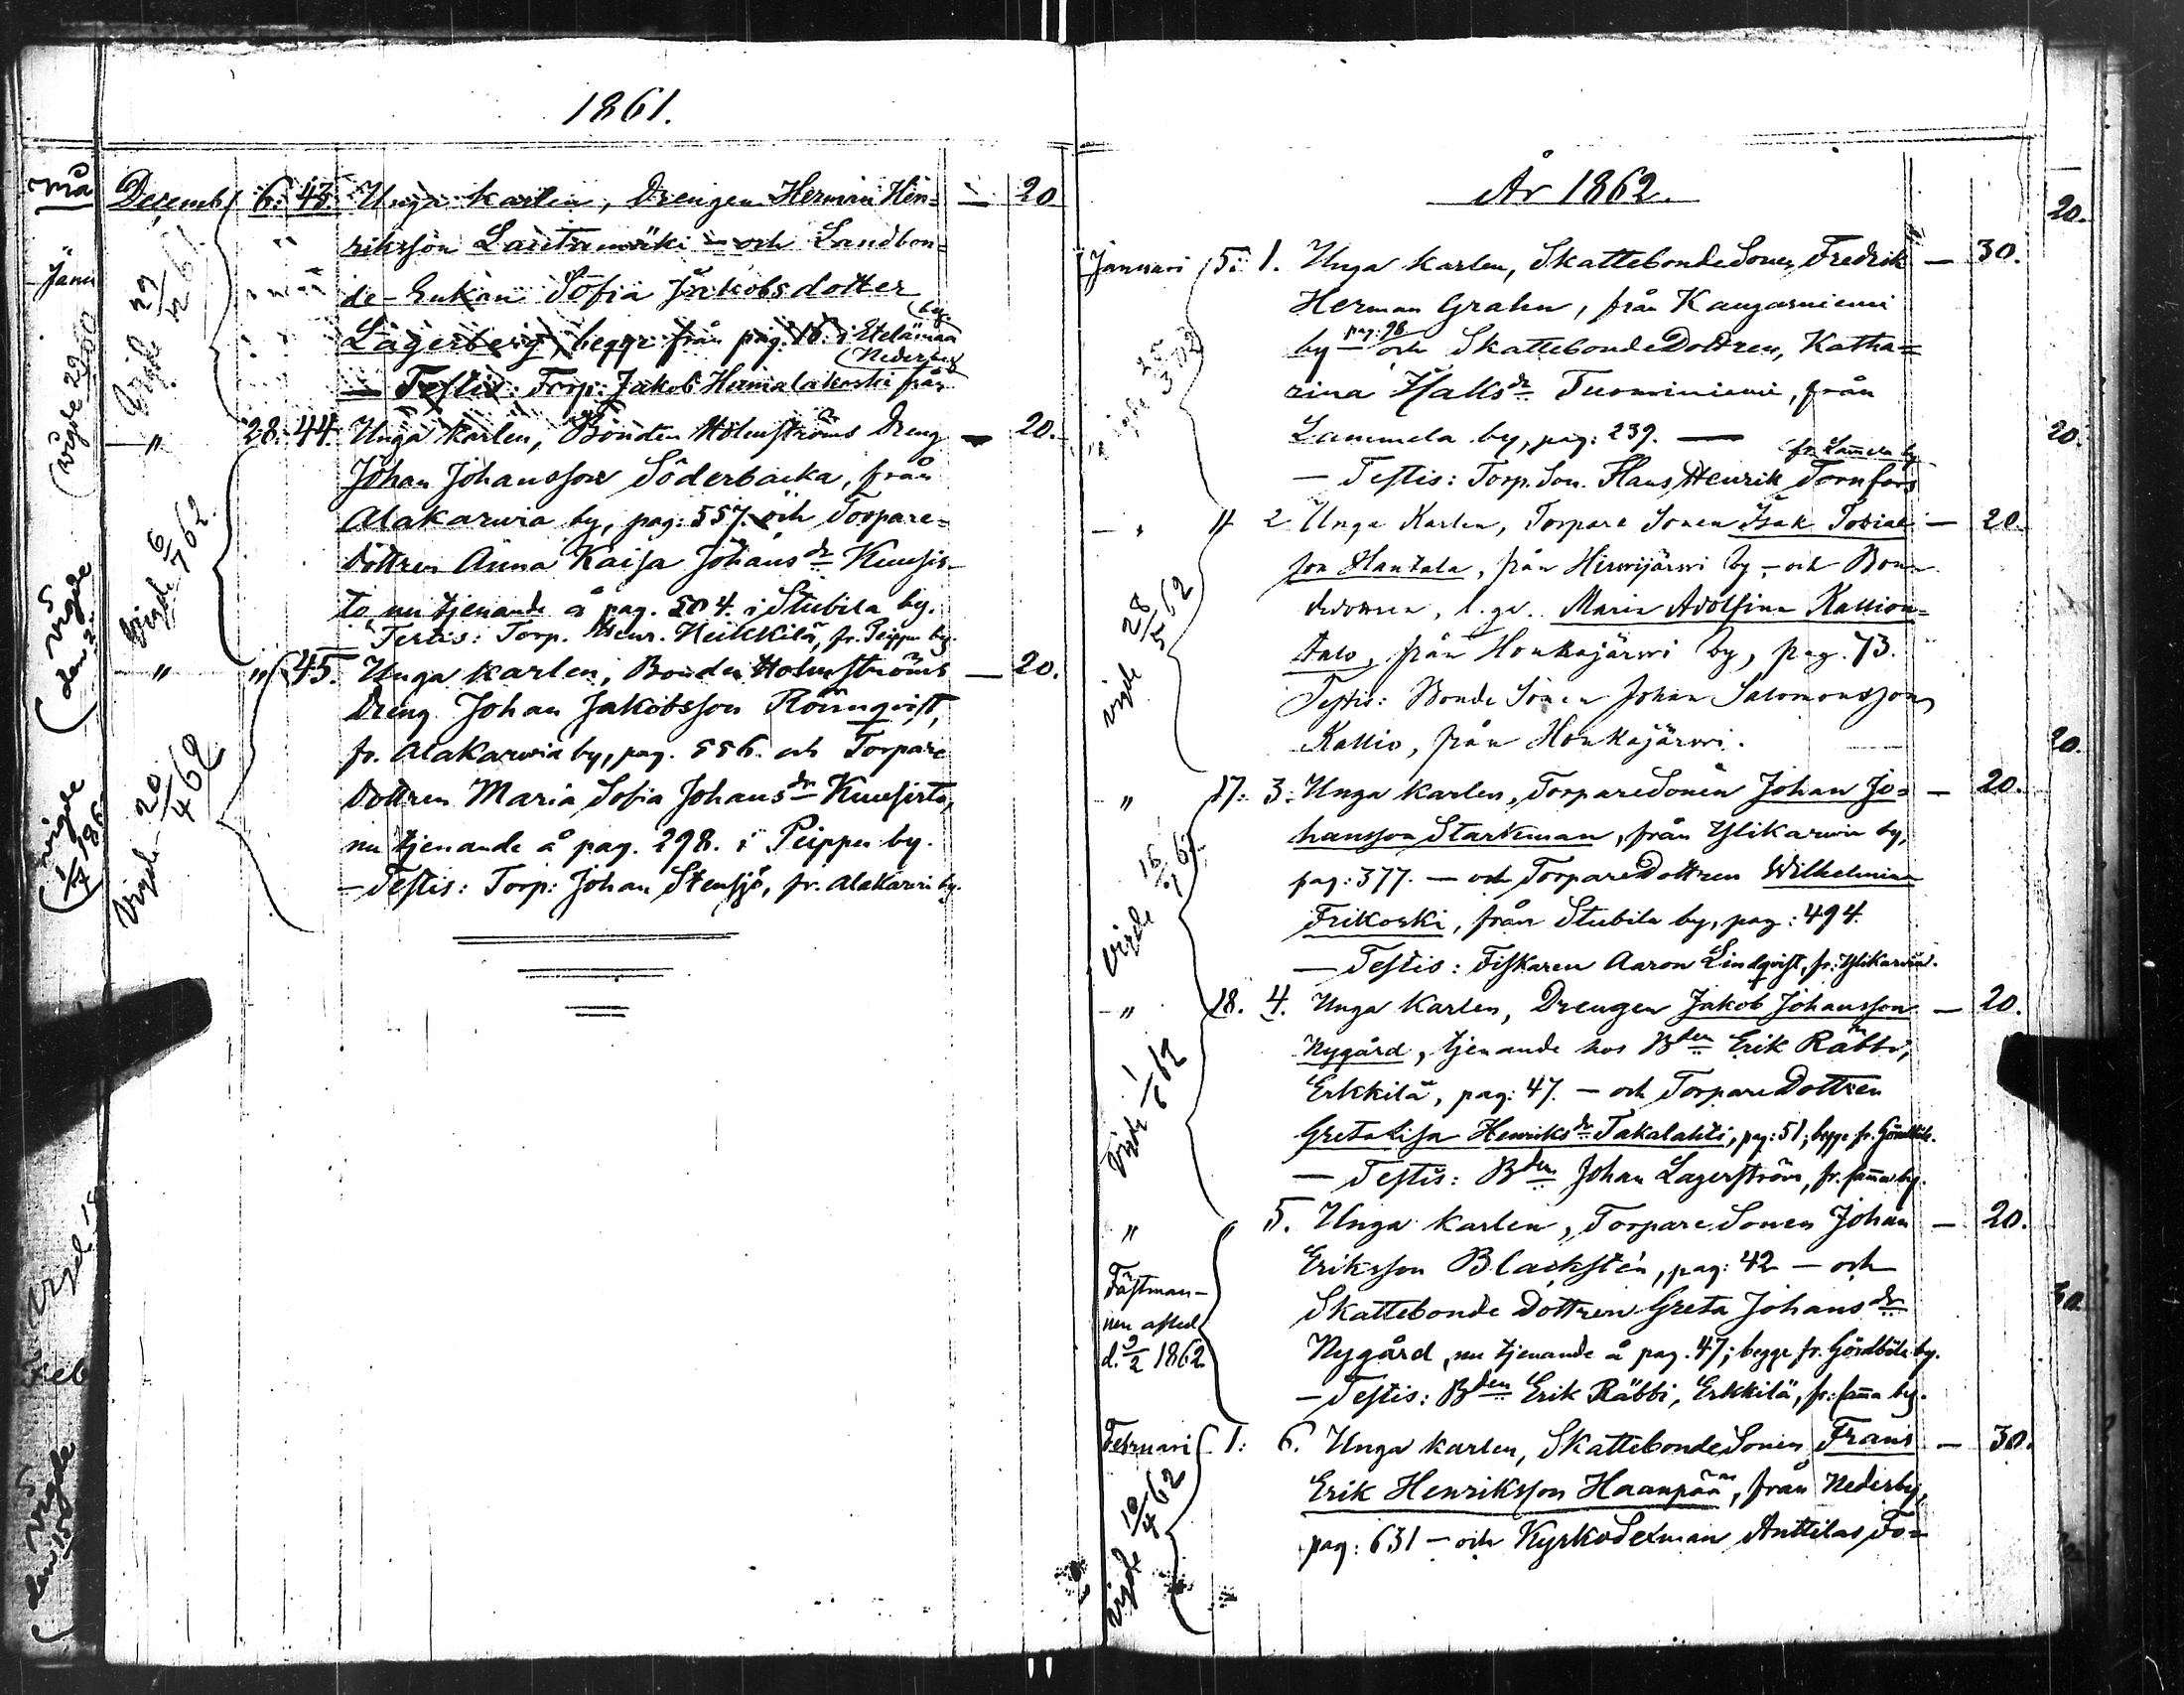 1861.
Decemb. 6. 43. Unga karlen, Drengen Herman Hen= — 20
riksson Lautamäki — och Landbon=
de-Enkan Sofia Jakobsdotter
Lagerberg, begge från pag. 16. i Etelämaa by.
— Testis: Torp. Jakob Heinalakoski från Nederby
Vigde 27/12 61.
— " 28. 44. Unga karlen, Bonden Holmströms Dreng — 20.
Johan Johansson Söderbacka, från
Alakarwia by, pag: 557. och Torpare=
dottren Anna Kaisa Johansdr Kuusis-
to, nu tjenande å pag. 504. i Stubila by.
Testis: Torp. Henr. Heikkilä, fr. Peippu by.
Vigde 6/7 62.
— " " 45. Unga karlen, Bonden Holmströms — 20.
Dreng Johan Jakobsson Rönnqvist,
fr. Alakarwia by, pag. 556. och Torpare
Dottren Maria Sofia Johansdr Kuusisto,
nu tjenande å pag. 298. i Peippu by.
— Testis: Torp: Johan Stensjö, fr. Alakarwi by.
Vigde 20/4 62
År 1862.
Januari 5. 1. Unga karlen, SkattebondeSonen Fredrik — 30.
Herman Grahn, från Kangasniemi
by pag: 98 och SkattebondeDottren, Katha=
rina Maksdr Tuominiemi, från
Lammela by, pag: 239. —
— Testis: Torp. Son. Hans Henrik Tornfors fr. Lammela by
— " " 2. Unga Karlen, Torpare Sonen Isak Tobias — 20.
son Hautala, från Hirwijärwi by — och Bon-
dedottren, Maria Adolfina Kallion-
talo, från Honkajärwi by, pag. 73.
Testis: Bonde Sonen Johan Salomonsson
Kallio, från Honkajärwi.
vigde 28/5 62
" 17. 3. Unga karlen, TorpareSonen Johan Jo= — 20.
hansson Starkman, från Ylikarwia by,
pag: 377. — och TorpareDottren Wilhelmina
Frikoski, från Stubila by, pag: 494.
— Testis: Fiskaren Aaron Lindqvist, fr. Ylikarwia.
Vigde
— " 18. 4. Unga Karlen, Drengen Jakob Johansson — 20.
Nygård, tjenande hos Bden Erik Räbbi,
Erkkilä, pag: 47. — och TorpareDottren
Greta Lisa Henriksdr Takalahti, pag: 51; begge fr. Gördböle.
— Testis: Bden Johan Lagerström, fr. samma by.
Vigde 1/6 62
" " 5. Unga karlen, Torpare Sonen Johan — 20.
Eriksson Blackstén, pag: 42 — och
Skattebonde Dottren Greta Johansdr
Nygård, nu tjenande å pag. 47; begge fr. Gördböle by.
— Testis: Bden Erik Räbbi, Erkkilä, fr: samma by.
Fästman-
nen afled
d. 9/2 1862
Februari 1: 6. Unga karlen, SkattebondeSonen Frans — 30.
Erik Henriksson Haanpää, från Nederby,
pag: 631 — och Kyrko Sexman Anttilas Do=
vigde 10/4 62